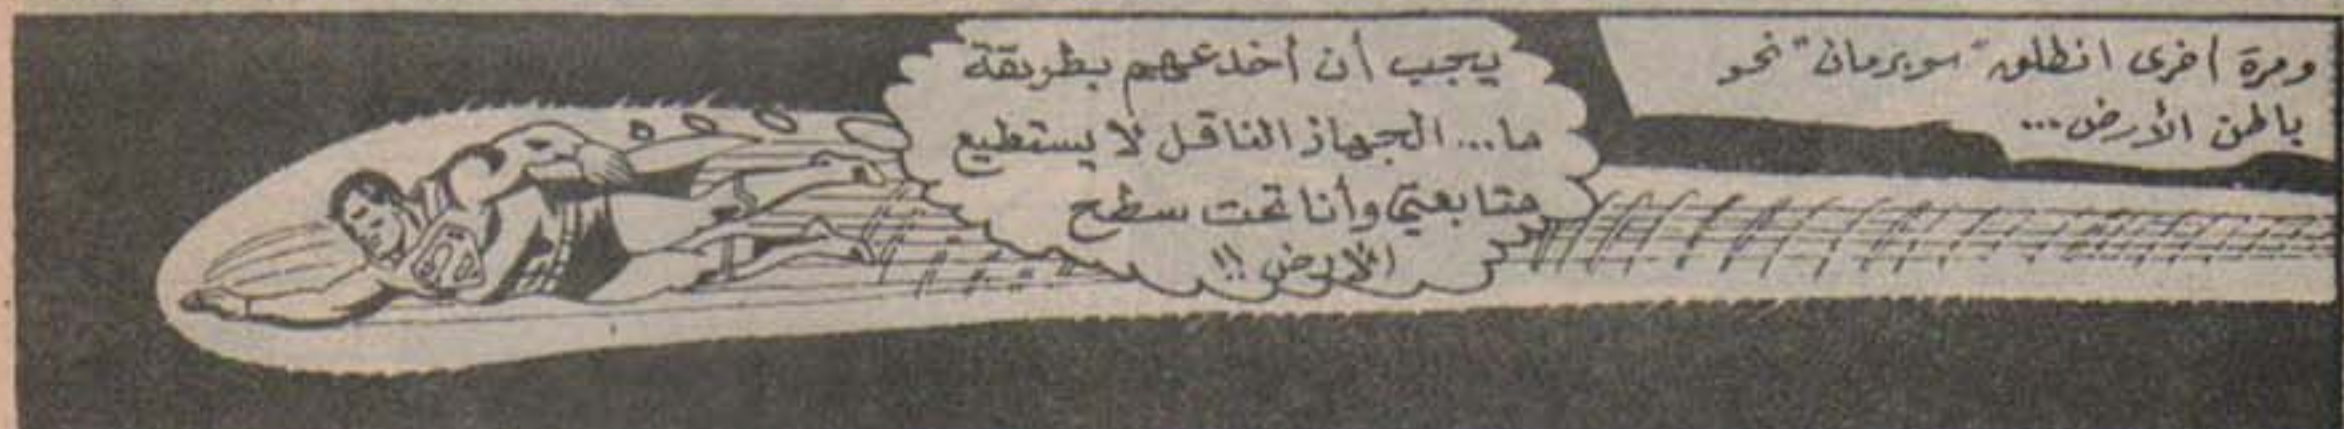 ومرة أخرى انطلق "سوبرمان" نحو
باطن الأرض...
يجب أن أخدعهم بطريقة
ما... الجهاز الناقل لا يستطيع
متابعتي وأنا تحت سطح
الأرض !!!